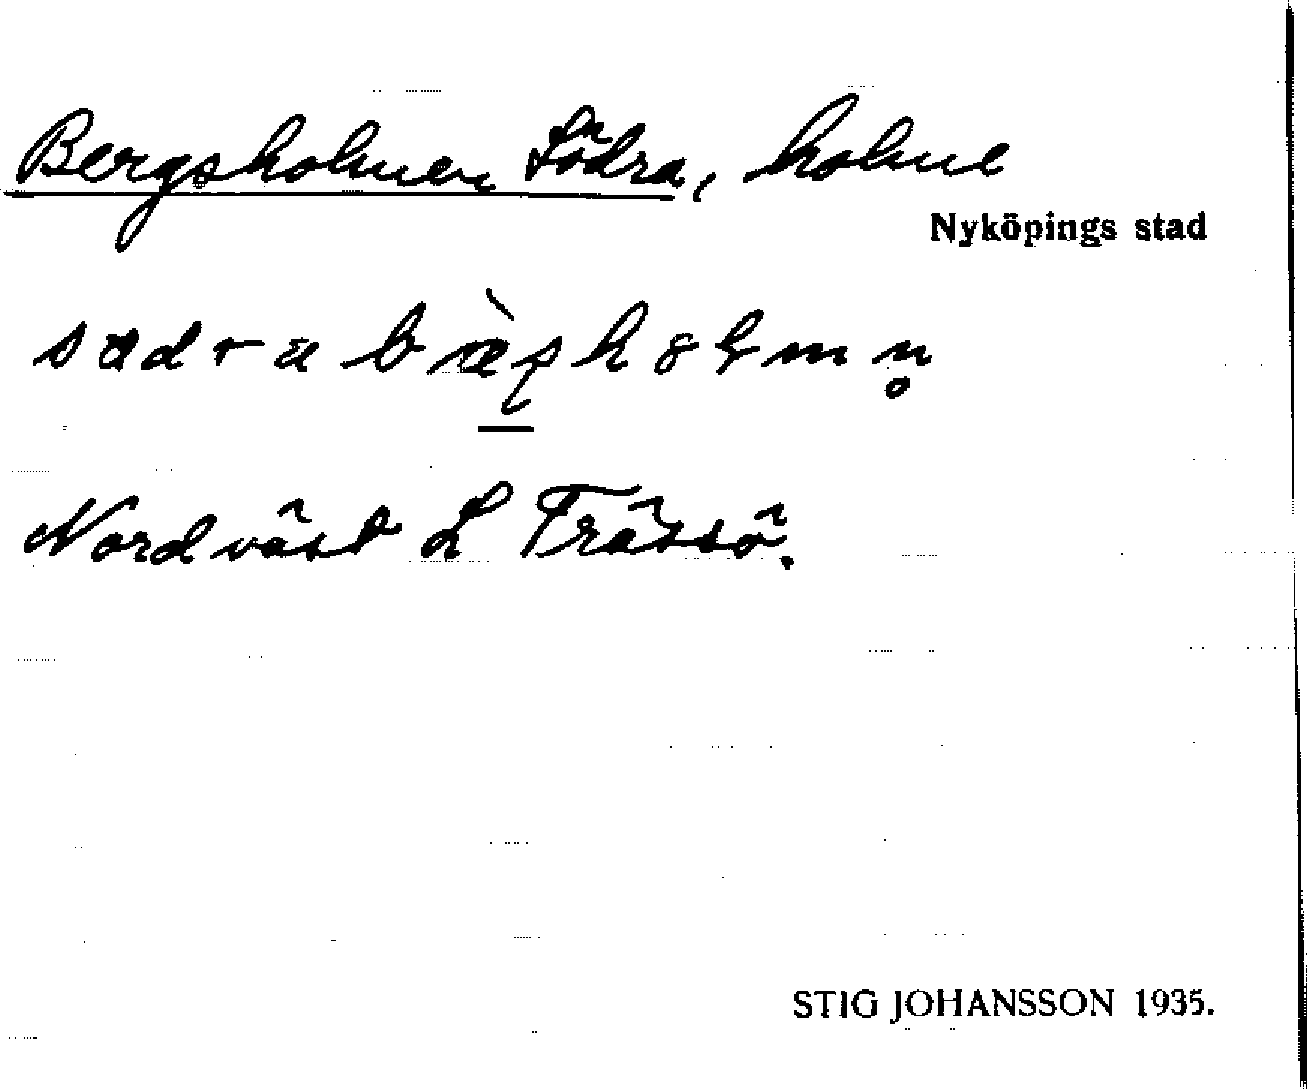 Bergsholmen Södra, holme
Nyköpings stad
Nordväst L Trässö.
STIG JOHANSSON 1935.